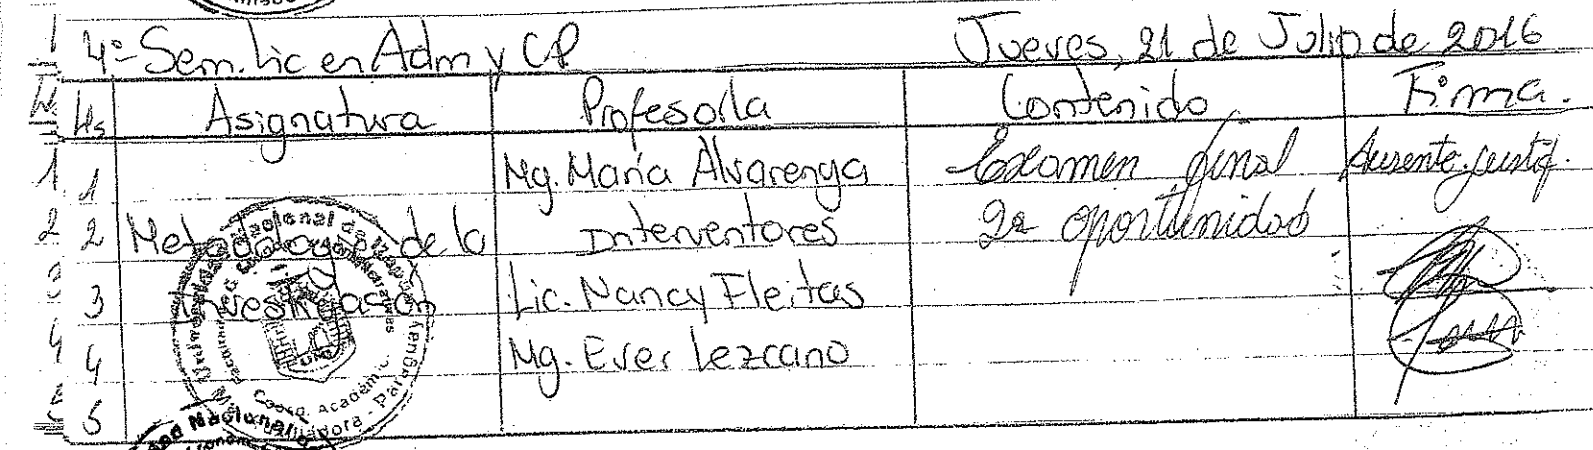 4º Sem. Lic en Adm y CP Jueves, 21 de Julio de 2016
Hs Asignatura Profesor/a Contenido Firma.
1 1 Mg. María Alvarenga Examen final Ausente justif.
2 2 Metodología de la Interventores 2a oportunidad
3 Investigación Lic. Nancy Fleitas
4 4 Mg. Ever Lezcano
5